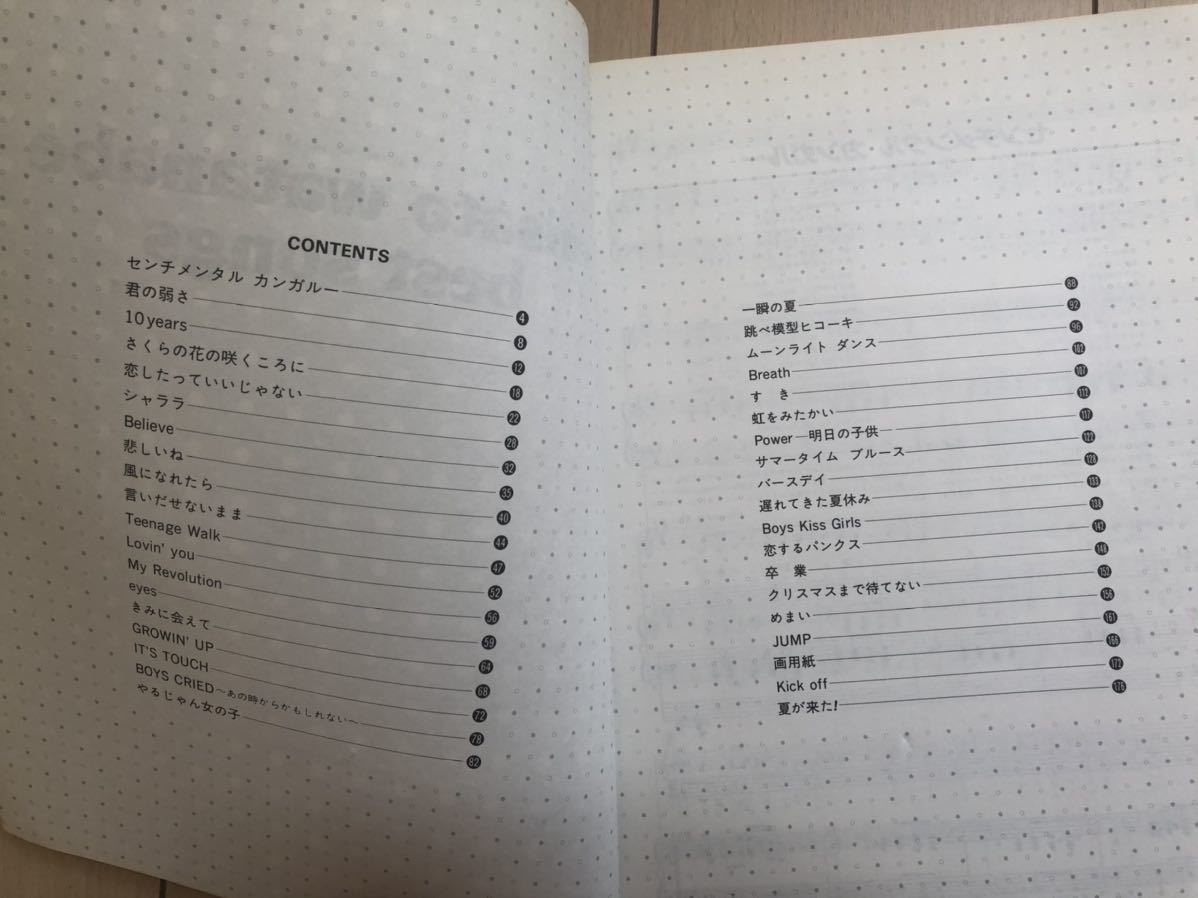 CONTENTS
センチメンタル カンガルー 4
君の弱さ 8
10 years 12
さくらの花の咲くころに 18
恋したっていいじゃない 22
シャララ 28
Believe 32
悲しいね 35
風になれたら 40
言いだせないまま 44
Teenage Walk 47
Lovin' you 52
My Revolution 56
eyes 59
きみに会えて 64
GROWIN' UP 68
IT'S TOUCH 72
BOYS CRIED～あの時からかもしれない～ 78
やるじゃん女の子 82
一瞬の夏 88
跳べ模型ヒコーキ 92
ムーンライト ダンス 96
Breath 102
す き 107
虹をみたかい 112
Power—明日の子供 117
サマータイム ブルース 122
バースデイ 128
遅れてきた夏休み 133
Boys Kiss Girls 138
恋するパンクス 142
卒 業 148
クリスマスまで待てない 152
めまい 156
JUMP 161
画用紙 166
Kick off 172
夏が来た! 176